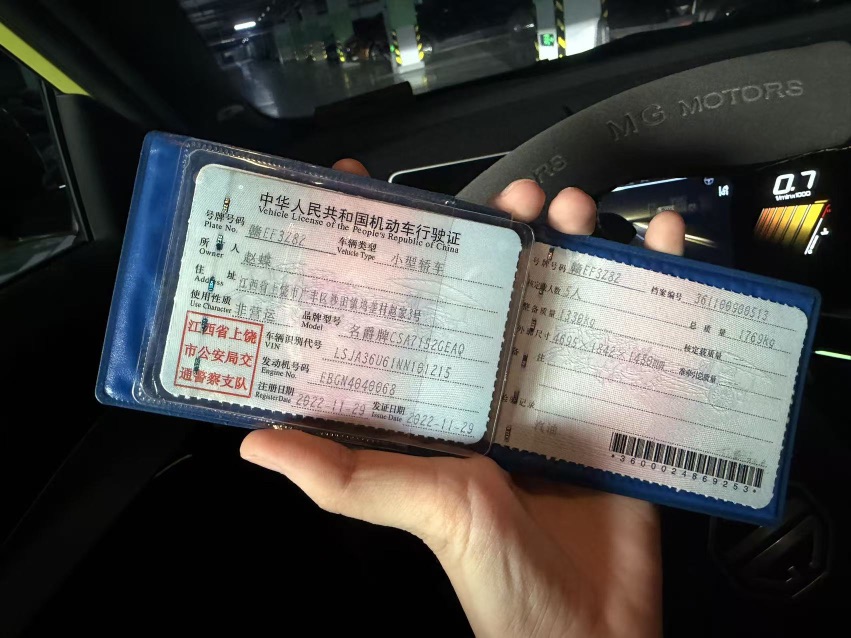 MG MOTORS
RS
0.7
1/min×1000
中华人民共和国机动车行驶证
Vehicle License of the People's Republic of China
号牌号码 赣EF3Z82 车辆类型 小型轿车
Plate No. Vehicle Type
所有人 赵蝶
Owner
住址 江西省上饶市广丰区
Address
使用性质 非营运 品牌型号 名爵牌CSA7152GEAQ
Use Character Model
江西省上饶
市公安局交
通警察支队
车辆识别代号 LSJA36U61NN101215
VIN
发动机号码 EBGN4040068
Engine No.
注册日期 2022-11-29 发证日期 2022-11-29
Register Date Issue Date
号牌号码 赣EF3Z82 档案编号 361100900513
核定载人数 5人 总质量 1769kg
整备质量 1330kg 核定载质量
外廓尺寸 4695×1842×1458mm 准牵引总质量
备注
检验记录
汽油
*3600024869253*